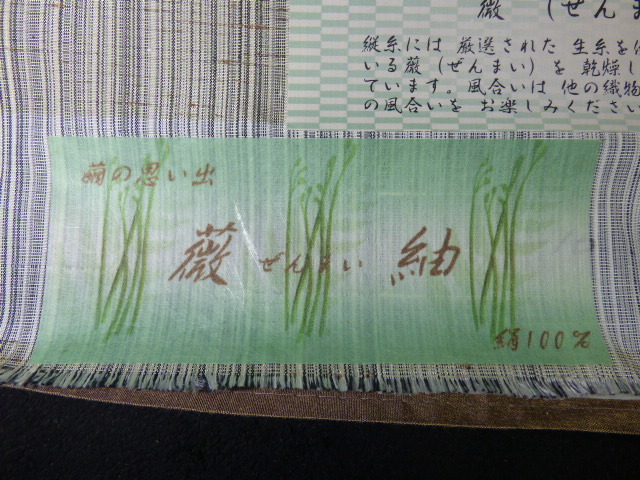 薇 (ぜんま
縦糸には 厳選された 生糸を使
いる薇 (ぜんまい) を 乾燥し
ています。風合いは 他の織物
の風合いを お楽しみください
繭の思い出
薇 ぜんまい 紬
絹100%